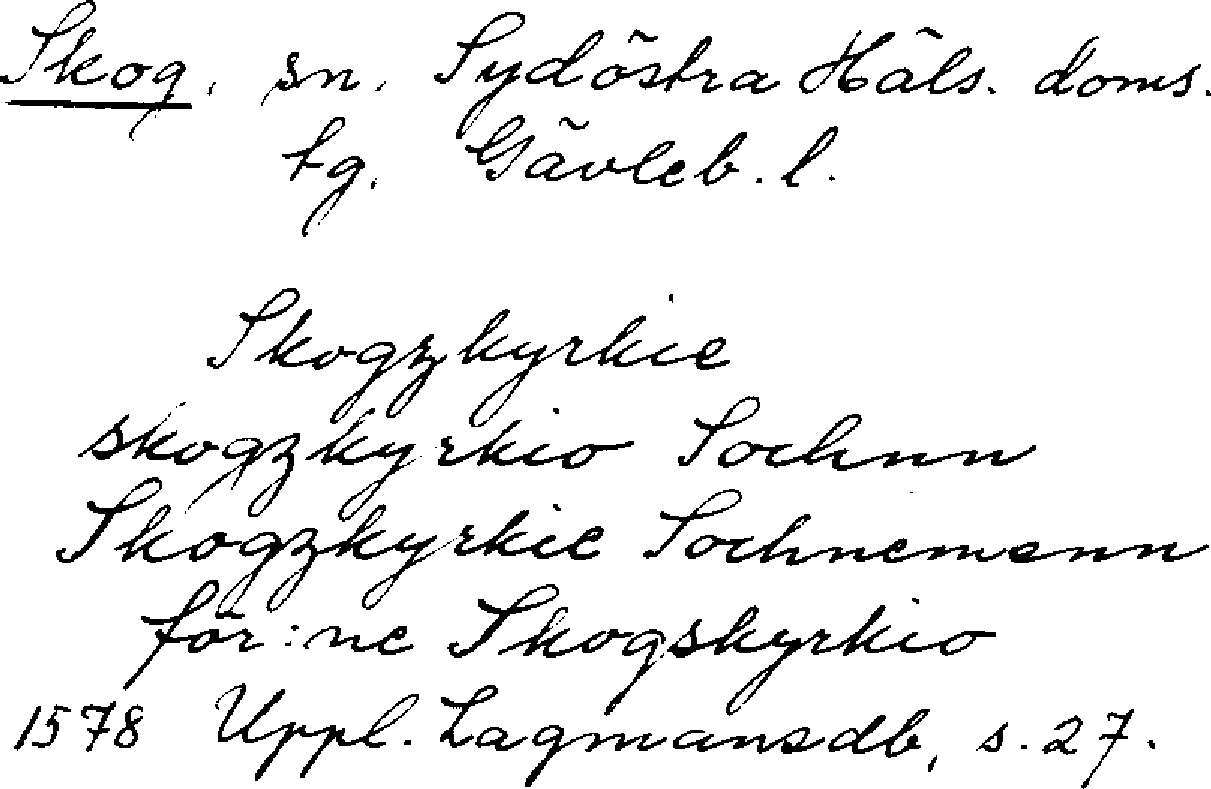 Skog, sn. Sydöstra Häls. doms.
tg. Gävleb. l.
Skogzkyrkie
skogzkyrkio Sochnn
Skogzkyrkie Sochnemenn
för:ne Skogskyrkio
1578 Uppl. Lagmansdb, s. 27.